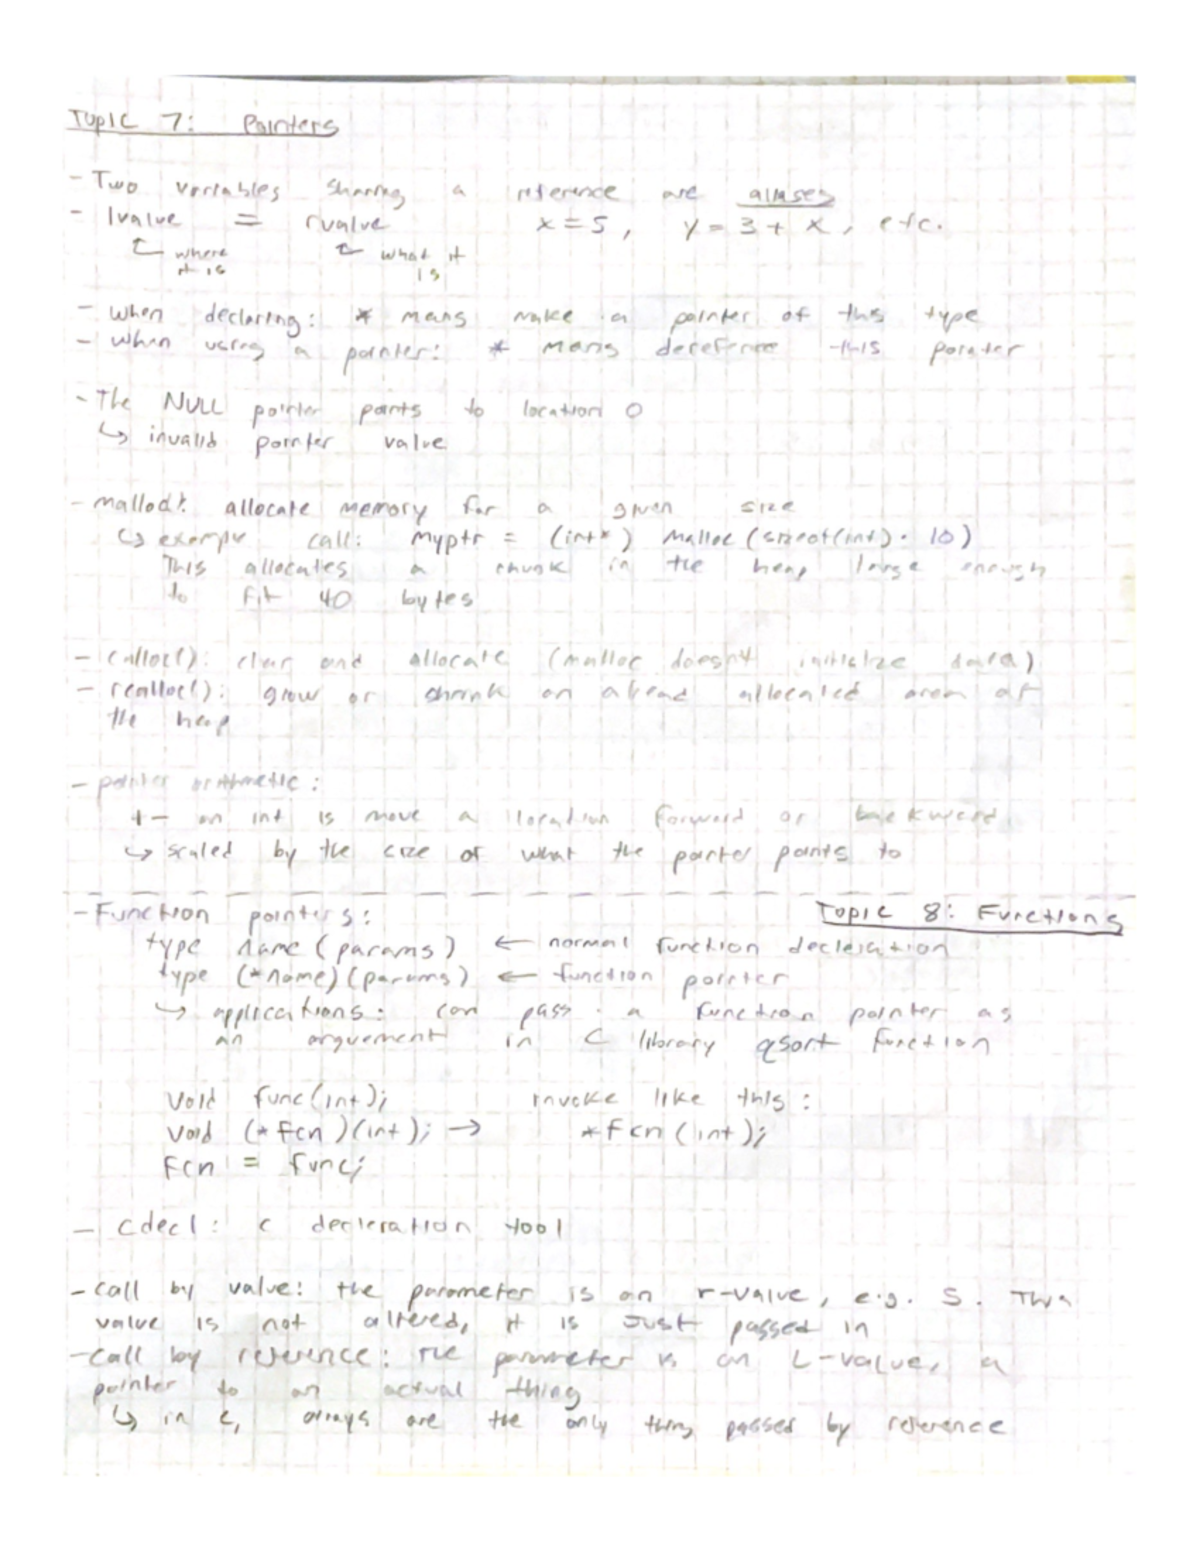 Topic 7: Pointers
- Two variables sharing a reference are aliases
- lvalue = rvalue x = 5, y = 3 + x, etc.
where it is
what it is
- when declaring: * means make a pointer of this type
- when using a pointer: * means dereference this pointer
- The NULL pointer points to location 0
↳ invalid pointer value
- malloc(): allocate memory for a given size
↳ example call: myptr = (int*) malloc(sizeof(int) · 10)
This allocates a chunk in the heap large enough
to fit 40 bytes
- calloc(): clear and allocate (malloc doesn't initialize data)
- realloc(): grow or shrink an alread allocated area of
the heap
- pointer arithmetic:
+- an int is move a location forward or backward
↳ scaled by the size of what the pointer points to
Topic 8: Functions
- Function pointers:
type name (params) ← normal function decleration
type (*name)(params) ← function pointer
↳ applications: can pass a function pointer as
an arguement in C library qsort function
void func(int); invoke like this:
void (*fcn)(int); → *fcn(int);
fcn = func;
- cdecl: c decleration tool
- call by value: the parameter is an r-value, e.g. 5. This
value is not altered, it is just passed in
- call by reference: the parameter is an L-value, a
pointer to an actual thing
↳ in c, arrays are the only thing passed by reference